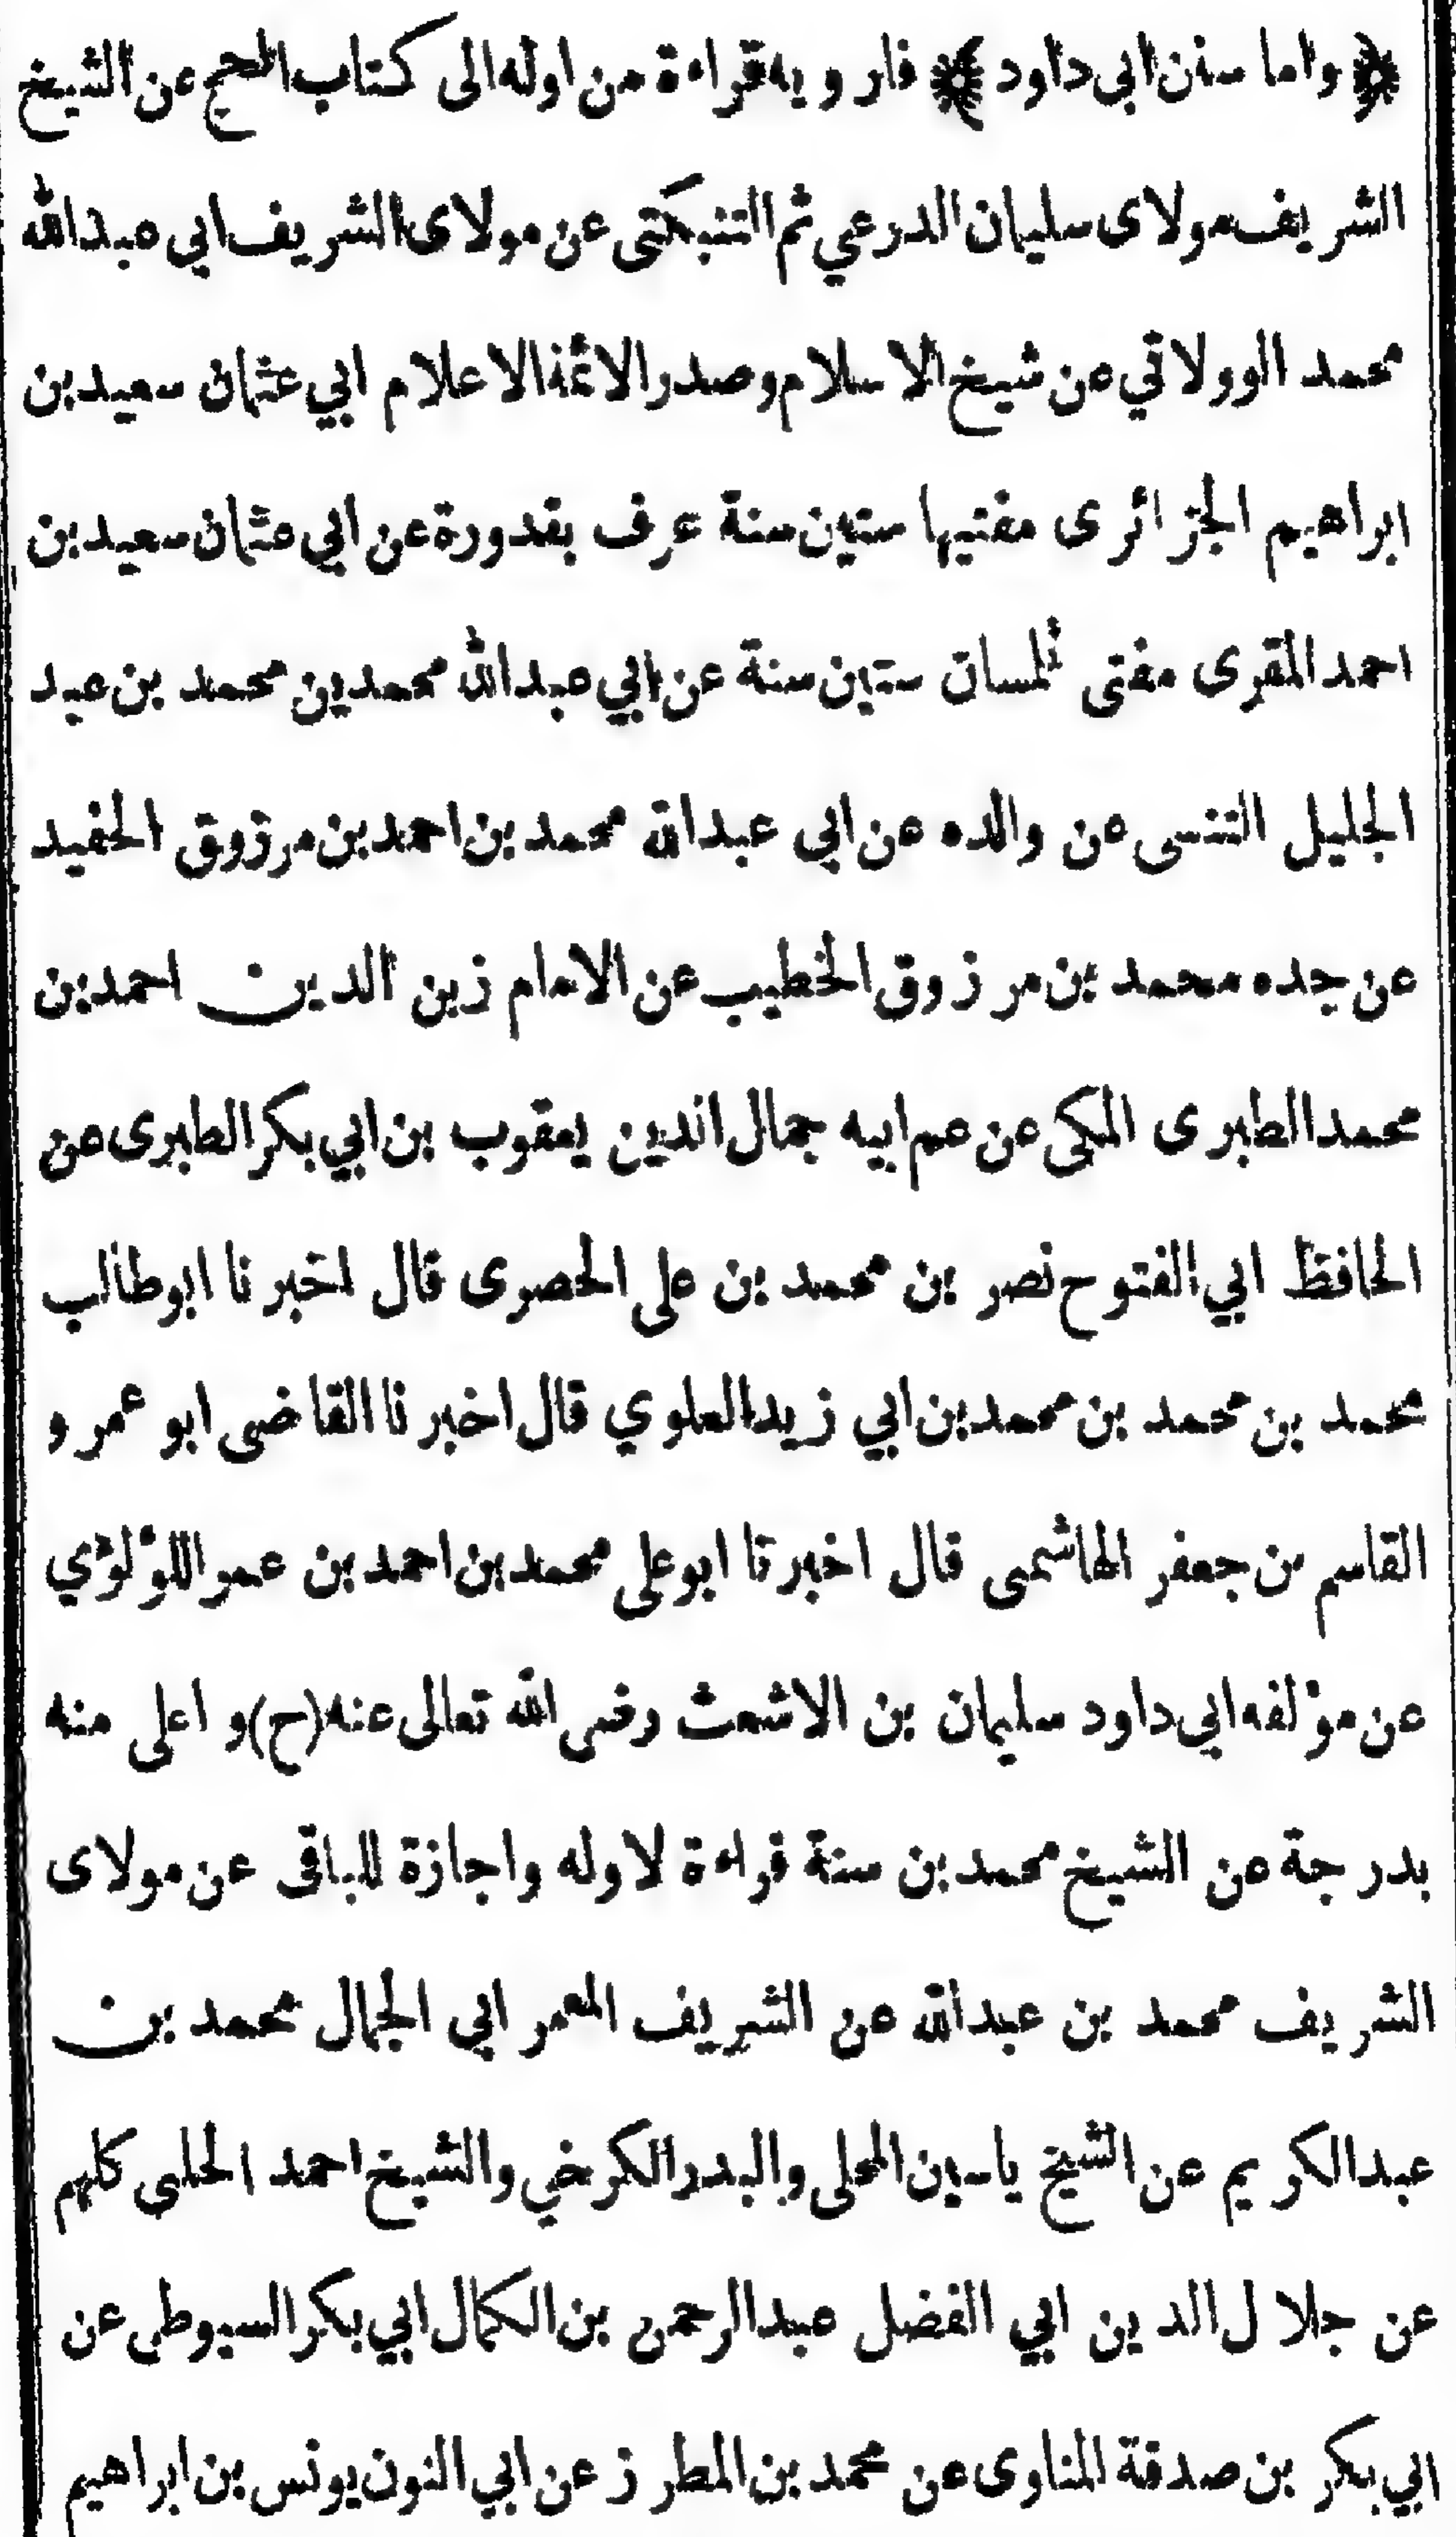 ﴿ واما سنن ابي داود ﴾ فارويه قراءة من اوله الى كتاب الحج عن الشيخ
الشريف مولاى سليمان الدرعي ثم التنبكتى عن مولاى الشريف ابي عبدالله
محمد الوولاتي عن شيخ الاسلام وصدر الائمة الاعلام ابي عثمان سعيد بن
ابراهيم الجزائرى مفتيها ستين سنة عرف بقدورة عن ابي عثمان سعيد بن
احمد المقرى مفتى تلمسان ستين سنة عن ابي عبدالله محمد بن محمد بن عبد
الجليل التنسى عن والده عن ابي عبدالله محمد بن احمد بن مرزوق الحفيد
عن جده محمد بن مرزوق الخطيب عن الامام زين الدين احمد بن
محمد الطبرى المكى عن عم ابيه جمال الدين يعقوب بن ابي بكر الطبرى عن
الحافظ ابي الفتوح نصر بن محمد بن على الحصرى قال اخبرنا ابوطالب
محمد بن محمد بن محمد بن ابي زيد العلوي قال اخبرنا القاضى ابو عمرو
القاسم بن جعفر الهاشمى قال اخبرنا ابوعلى محمد بن احمد بن عمر اللؤلؤي
عن مؤلفه ابي داود سليمان بن الاشعث رضى الله تعالى عنه (ح) و اعلى منه
بدرجة عن الشيخ محمد بن سنة قراءة لاوله واجازة للباقى عن مولاى
الشريف محمد بن عبدالله عن الشريف المعمر ابي الجمال محمد بن
عبدالكريم عن الشيخ ياسين المحلى والبدر الكرخي والشيخ احمد الحلبى كلهم
عن جلال الدين ابي الفضل عبدالرحمن بن الكمال ابي بكر السيوطى عن
ابي بكر بن صدقة المناوى عن محمد بن المطرز عن ابي النون يونس بن ابراهيم